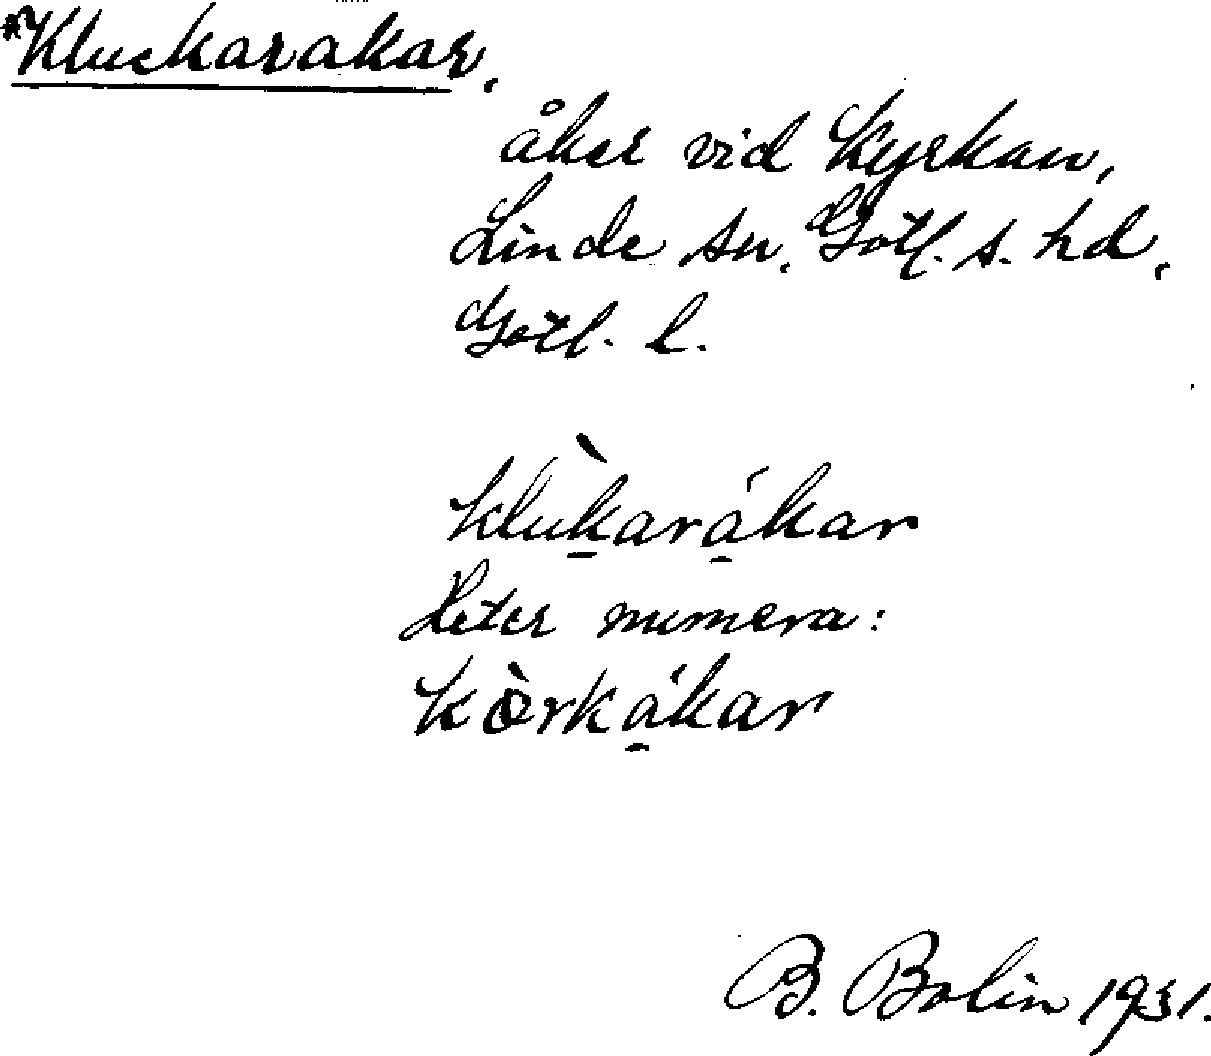 *Kluckarakar,
åker vid Kyrkan,
Linde sn, Gotl. s. hd,
Gotl. l.
klùk̠ará̠kar
Heter numera:
kòrká̠kar
B. Bolin 1931.